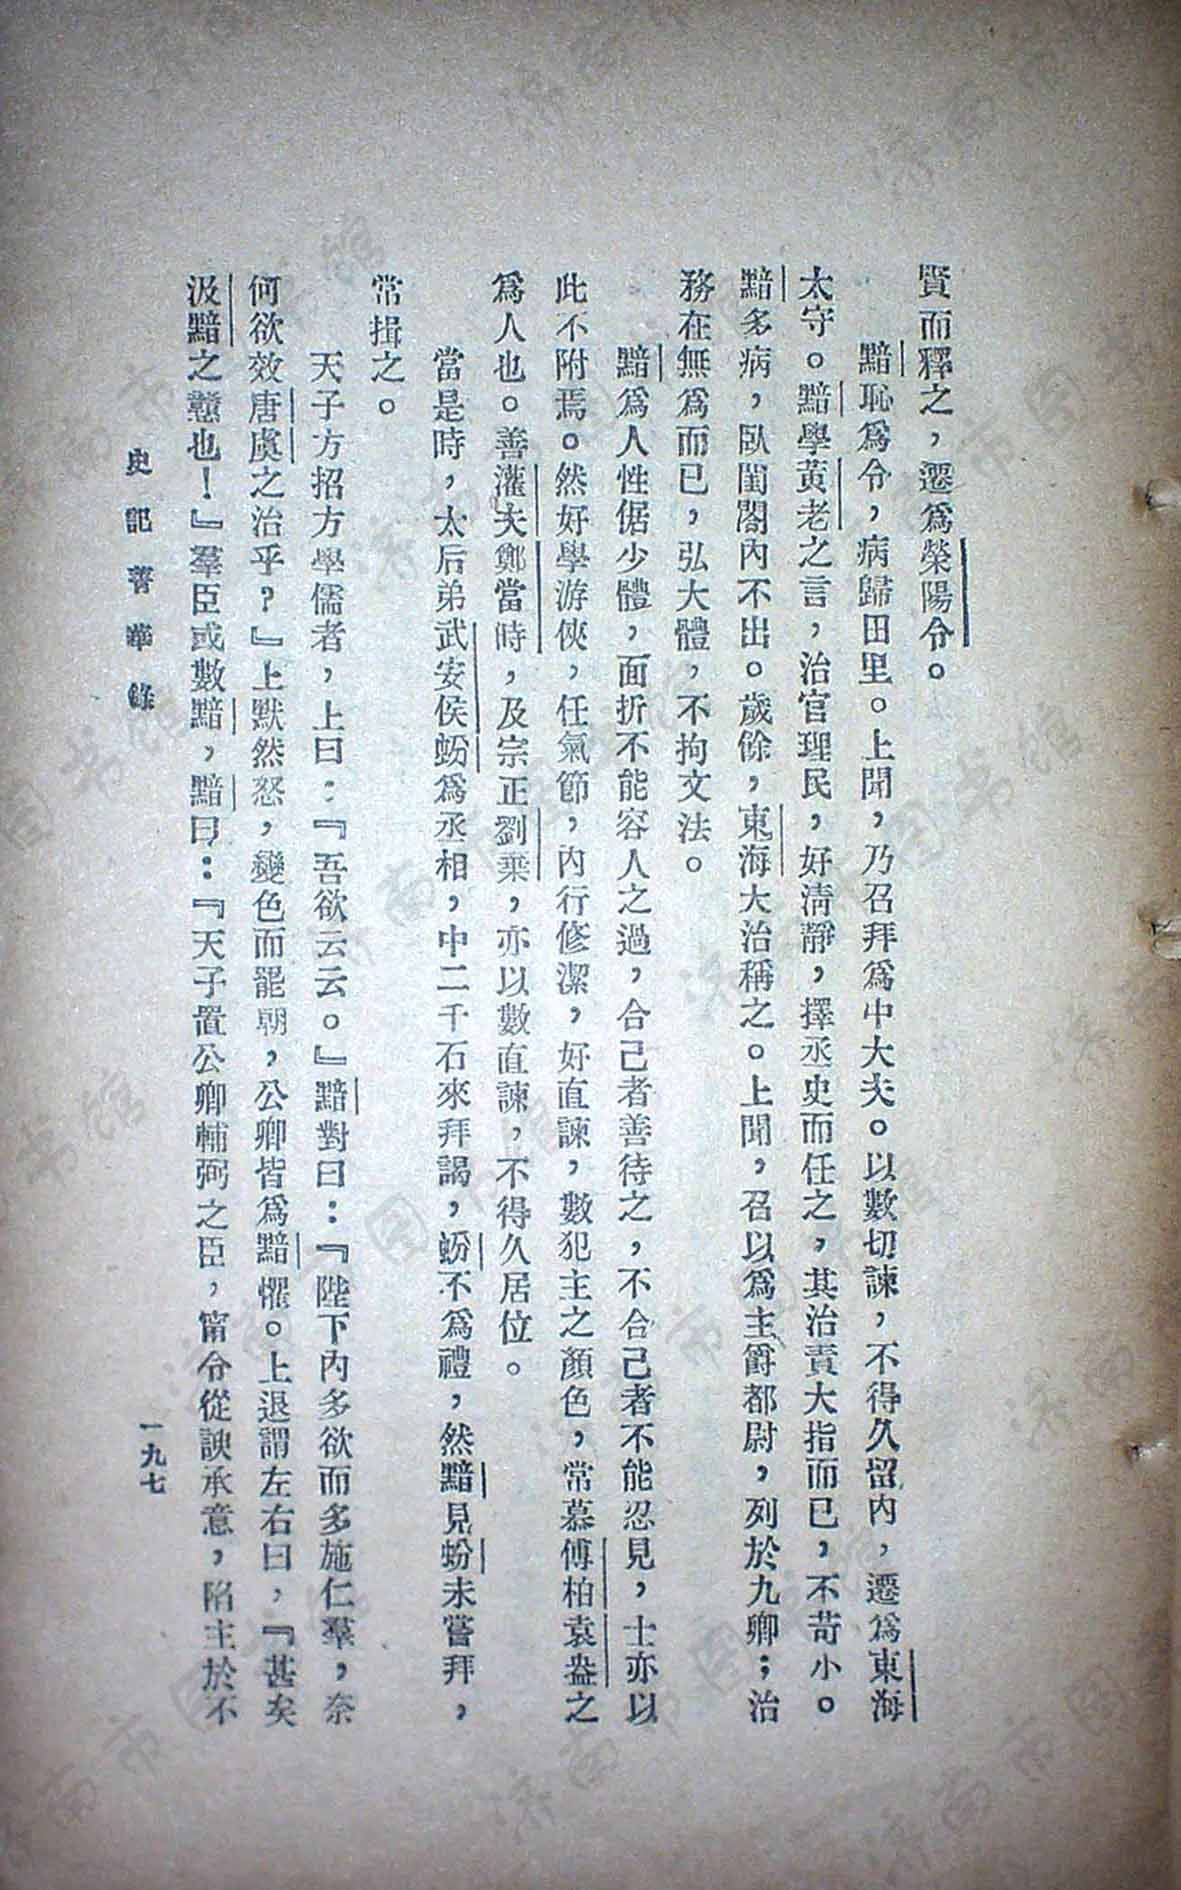 賢而釋之，遷爲榮陽令。
黯恥爲令，病歸田里。上聞，乃召拜爲中大夫。以數切諫，不得久留內，遷爲東海
太守。黯學黃老之言，治官理民，好淸靜，擇丞史而任之，其治責大指而已，不苛小。
黯多病，臥閨閤內不出。歲餘，東海大治稱之。上聞，召以爲主爵都尉，列於九卿；治
務在無爲而已，弘大體，不拘文法。
黯爲人性倨少體，面折不能容人之過，合己者善待之，不合己者不能忍見，士亦以
此不附焉。然好學游俠，任氣節，內行修潔，好直諫，數犯主之顏色，常慕傅柏袁盎之
爲人也。善灌夫鄭當時，及宗正劉棄，亦以數直諫，不得久居位。
當是時，太后弟武安侯蚡爲丞相，中二千石來拜謁，蚡不爲禮，然黯見蚡未嘗拜，
常揖之。
天子方招方學儒者，上曰：『吾欲云云。』黯對曰：『陛下內多欲而多施仁羣，奈
何欲效唐虞之治乎？』上默然怒，變色而罷朝，公卿皆爲黯懼。上退謂左右曰，『甚矣
汲黯之戇也！』羣臣或數黯，黯曰：『天子置公卿輔弼之臣，甯令從諛承意，陷主於不
史記菁華錄
一九七
济南市图书馆